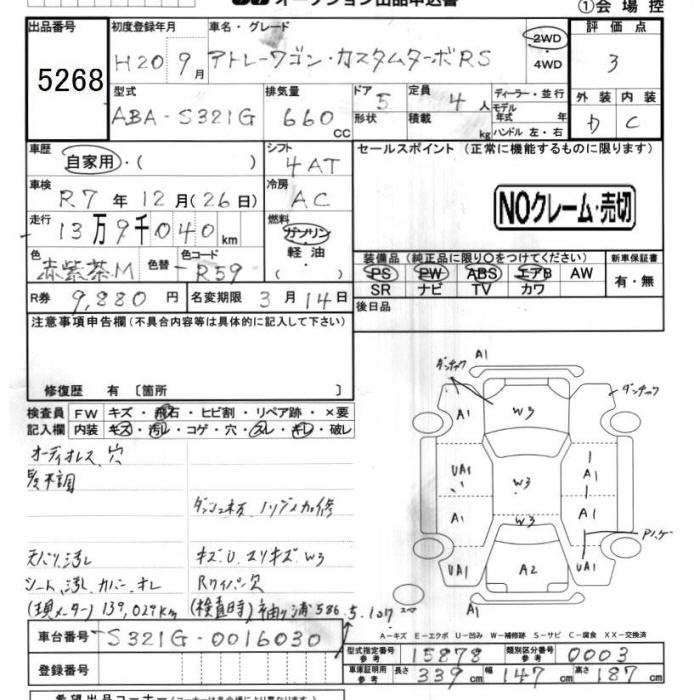 オークション出品申込書
①会場控
出品番号
5268
初度登録年月
H20 9月
車名・グレード
アトレーワゴン・カスタムターボRS
2WD
・4WD
評価点
3
型式
ABA-S321G
排気量
660 cc
ドア 5
形状
定員 4人
積載 kg
ディーラー・並行
モデル年式 年
ハンドル 左・右
外装 内装
D C
車歴
自家用・( )
シフト
4AT
セールスポイント (正常に機能するものに限ります)
車検
R7年12月(26日)
冷房
AC
NOクレーム・売切
走行
13万9千040km
燃料
ガソリン
軽油
( )
色
赤紫茶M
色替
色コード
R59
装備品 (純正品に限り○をつけてください)
PS PW ABS エアB AW
SR ナビ TV カワ
新車保証書
有・無
R券 9,880円
名変期限 3月14日
後日品
注意事項申告欄(不具合内容等は具体的に記入して下さい)
修復歴 有〔箇所 〕
検査員
記入欄
FW キズ・飛石・ヒビ割・リペア跡・×要
内装 キズ・汚レ・コゲ・穴・スレ・キレ・破レ
天バリ汚レ
キズ.U.スリキズ W3
シート汚レ
Rワイパー欠
(現メーター) 139,029km
(検査時)
A1
A1
W3
A1
UA1
W3
A1
A1
W3
A1
UA1
A2
UA1
A1
A-キズ E-エクボ U-凹み W-補修跡 S-サビ C-腐食 XX-交換済
車台番号
S321G-0016030
登録番号
型式指定番号 参考
15878
類別区分番号 参考
0003
車庫証明用 参考
長さ 339cm
幅 147cm
高さ 187cm
希望出品コーナー